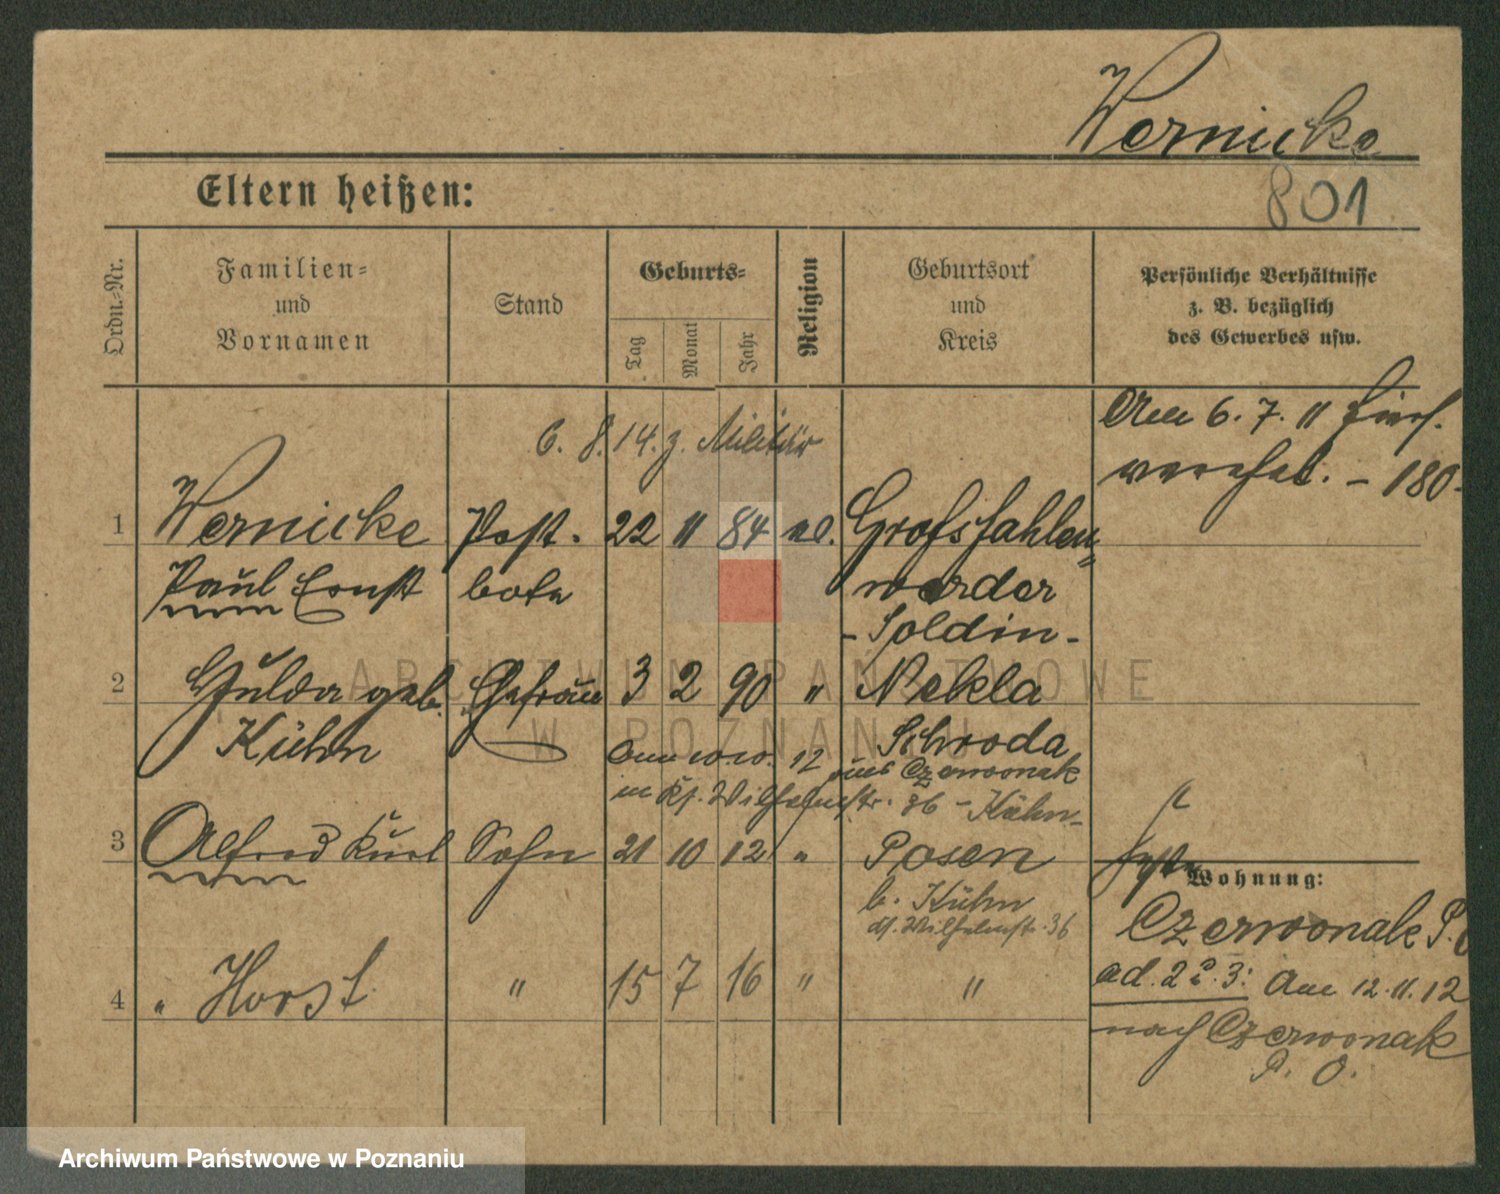 Wernicke
Eltern heißen:
801
Ordn.=Nr.
Familien=
und
Vornamen
Stand
Geburts=
Tag
Monat
Jahr
Religion
Geburtsort
und
Kreis
Persönliche Verhältnisse
z. B. bezüglich
des Gewerbes usw.
6. 8. 14. z. Militär
Am 6. 7. 11 hiers.
verehel. – 180.
1 Wernicke Post- 22 11 84 Großfahlen-
Paul Ernst bote werder
- Soldin -
2 Hulda geb. Ehefrau 3 2 90 " Nekla
Kühn Schroda
12 aus Czerwonak
in Kl. Wilhelmstr. 36 - Kühn -
3 Alfred Kurt Sohn 21 10 12 " Posen
b. Kühn
Kl. Wilhelmstr. 36
4 " Horst " 15 7 16 " "
Wohnung:
Czerwonak P. O
ad. 2 u. 3: Am 12. 11. 12
nach Czerwonak
P. O.
ARCHIWUM PAŃSTWOWE
W POZNANIU
Archiwum Państwowe w Poznaniu